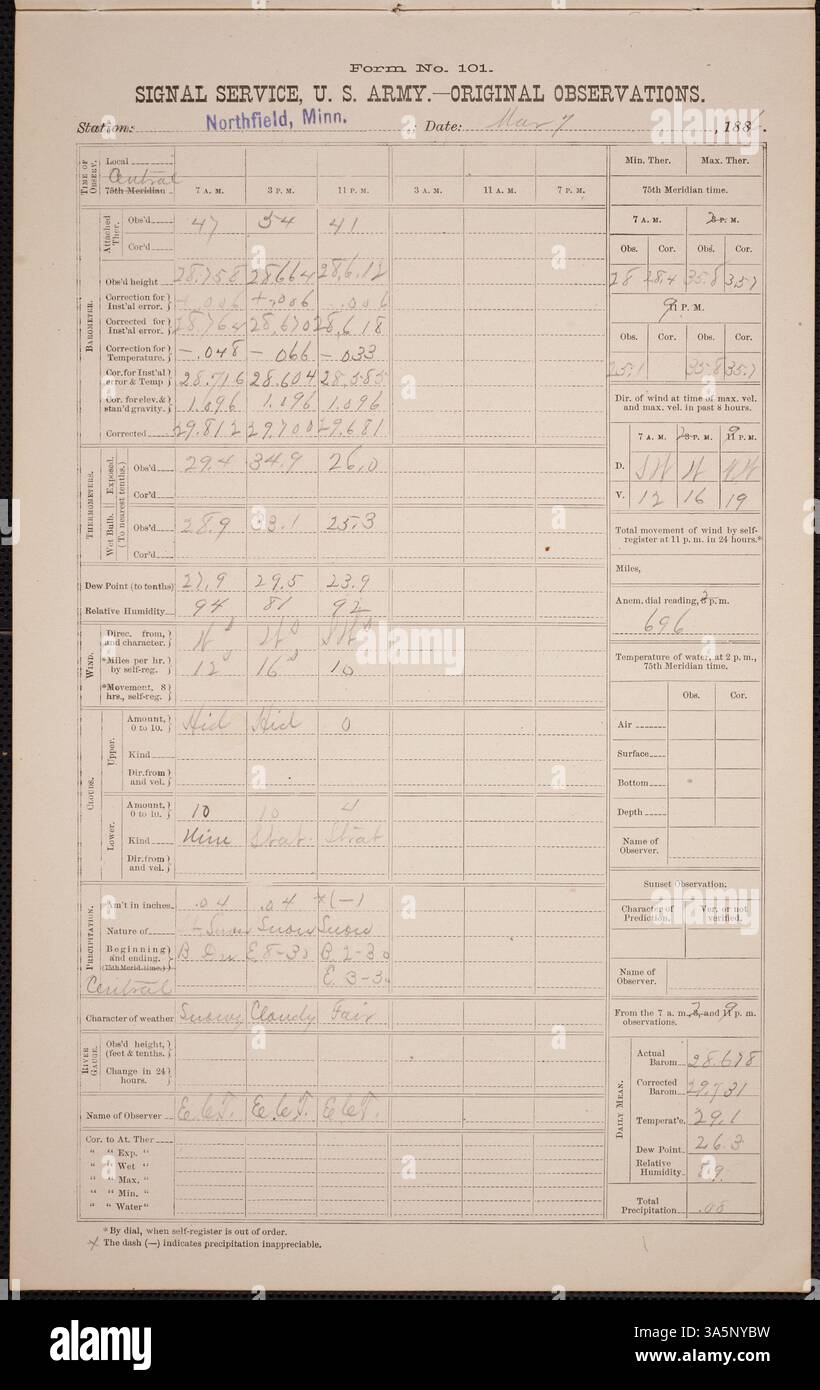 Form No. 101.
SIGNAL SERVICE, U. S. ARMY.—ORIGINAL OBSERVATIONS.
Station: Northfield, Minn. ; Date: Mar 7, 188
TIME OF OBSERV.
Local
Central
75th Meridian
7 A. M. 3 P. M. 11 P. M. 3 A. M. 11 A. M. 7 P. M.
Attached Ther.
Obs'd 47 54 41
Cor'd
BAROMETER.
Obs'd height 28.758 28.664 28.612
Correction for Inst'al error. +.006 +.006 .006
Corrected for Inst'al error. 28.764 28.670 28.618
Correction for Temperature. -.048 -.066 -.033
Cor. for Inst'al error & Temp 28.716 28.604 28.585
Cor. for elev. & stan'd gravity. 1.096 1.096 1.096
Corrected 29.812 29.700 29.681
THERMOMETERS.
(To nearest tenths.)
Exposed.
Obs'd 29.4 34.9 26.0
Cor'd
Wet Bulb.
Obs'd 28.9 33.1 25.3
Cor'd
Dew Point (to tenths) 27.9 29.5 23.9
Relative Humidity 94 81 92
WIND.
Direc. from, and character.
*Miles per hr. by self-reg. 12 16 10
*Movement, 8 hrs., self-reg.
CLOUDS.
Upper.
Amount, 0 to 10. Hid Hid 0
Kind
Dir. from and vel.
Lower.
Amount, 0 to 10. 10 10 4
Kind Nim Strat. Strat
Dir. from and vel.
PRECIPITATION.
Am't in inches .04 .04 *(-)
Nature of Snow Snow Snow
Beginning and ending. B. Dn E 8-30 B. 2-30
(75th Merid. time.) E. 3-30
Central
Character of weather Snowy Cloudy Fair
RIVER GAUGE.
Obs'd height, (feet & tenths.
Change in 24 hours.
Name of Observer
Cor. to At. Ther
" " Exp. "
" " Wet "
" " Max. "
" " Min. "
" " Water "
*By dial, when self-register is out of order.
The dash (—) indicates precipitation inappreciable.
Min. Ther. Max. Ther.
75th Meridian time.
7 A. M. P. M.
Obs. Cor. Obs. Cor.
28 28.4 35.8 35.7
9 11 P. M.
Obs. Cor. Obs. Cor.
25.1 35.8 35.7
Dir. of wind at time of max. vel. and max. vel. in past 8 hours.
7 A. M. P. M. 9 11 P. M.
D.
V. 12 16 19
Total movement of wind by self-register at 11 p. m. in 24 hours.*
Miles,
Anem. dial reading, p. m.
696
Temperature of water, at 2 p. m., 75th Meridian time.
Obs. Cor.
Air
Surface
Bottom
Depth
Name of Observer.
Sunset Observation.
Character of Prediction. Ver. or not verified.
Name of Observer.
From the 7 a. m., and 11 p. m. observations.
DAILY MEAN.
Actual Barom 28.678
Corrected Barom 29.731
Temperat'e. 29.1
Dew Point 26.3
Relative Humidity 89.
Total Precipitation .08
alamy
Image ID: 3A5NYBW
www.alamy.com